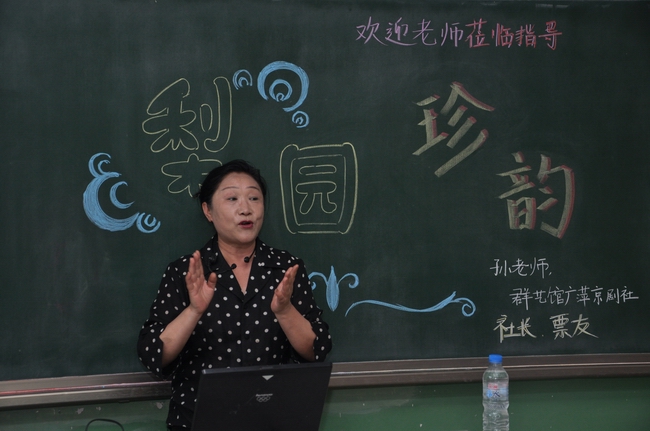 欢迎老师莅临指导
梨园
珍韵
孙老师,
群艺馆广萍京剧社
社长、票友